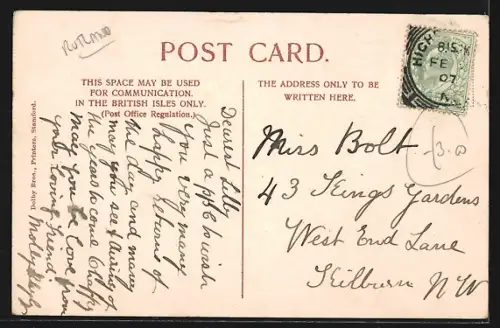 RUTLAND
POST CARD.
THIS SPACE MAY BE USED
FOR COMMUNICATION.
IN THE BRITISH ISLES ONLY.
(Post Office Regulation.)
THE ADDRESS ONLY TO BE
WRITTEN HERE.
Dolby Bros., Printers, Stamford.
HIGH
815 K
FE
07
Dearest Lilly
Just a ppc to wish
you very many
happy returns of
the day and many
may you see & during of
the years to come & happy
may you be love from
your loving friend
Molly
Miss Bolt.
43 Kings Gardens
West End Lane
Kilburn NW
3.0